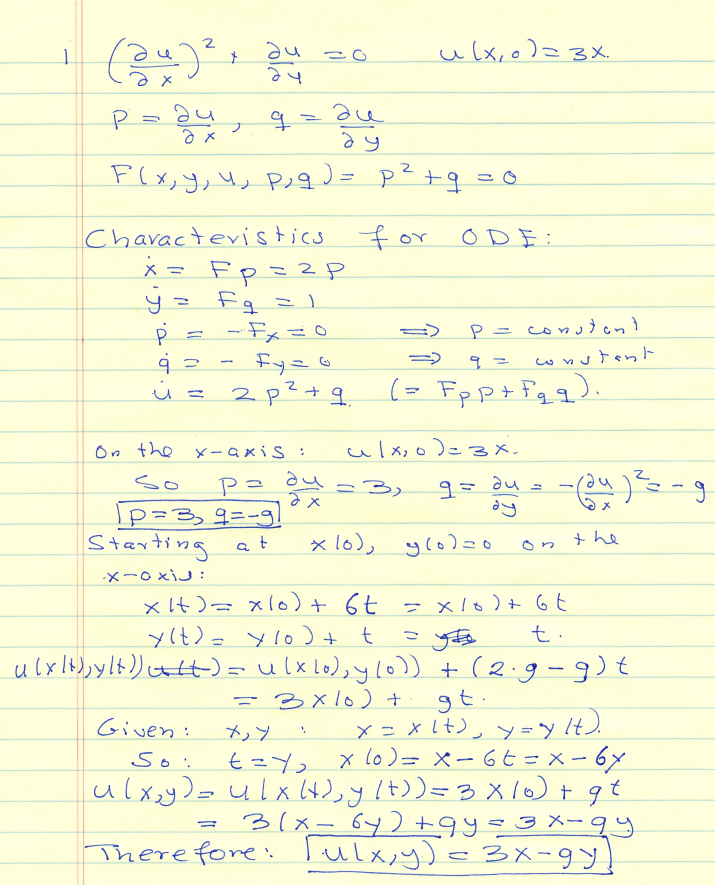 1 (∂u/∂x)² + ∂u/∂y = 0 u(x,0) = 3x.
p = ∂u/∂x, q = ∂u/∂y
F(x,y,u,p,q) = p² + q = 0
Characteristics for ODE:
ẋ = Fp = 2p
ẏ = Fq = 1
ṗ = -Fx = 0 => p = constant
q̇ = - Fy = 0 => q = constant
u̇ = 2p² + q (= Fp p + Fq q).
On the x-axis: u(x,0) = 3x.
So p = ∂u/∂x = 3, q = ∂u/∂y = -(∂u/∂x)² = -9
p = 3, q = -9
Starting at x(0), y(0) = 0 on the
x-axis:
x(t) = x(0) + 6t = x(0) + 6t
y(t) = y(0) + t = t.
u(x(t),y(t)) = u(x(0),y(0)) + (2·9 - 9)t
= 3x(0) + 9t.
Given: x,y : x = x(t), y = y(t).
So: t = y, x(0) = x - 6t = x - 6y
u(x,y) = u(x(t),y(t)) = 3x(0) + 9t
= 3(x - 6y) + 9y = 3x - 9y
Therefore: u(x,y) = 3x - 9y